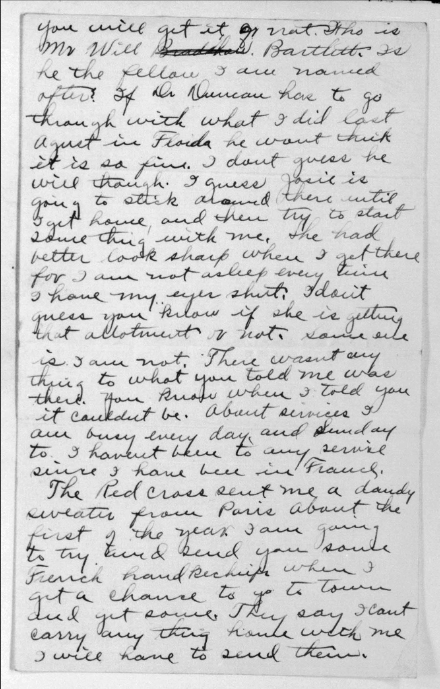 you will get it or not. Who is
Mr Will Bartlett. Is
he the fellow I am named
after? If Dr Duncan has to go
through with what I did last
Agust in Froida he wont think
it is so fine. I dont guess he
will though. I guess Josie is
going to stick around there until
I get home, and then try to start
something with me. She had
better look sharp when I get there
for I am not asleep every time
I have my eyes shut. I don't
guess you know if she is getting
that allotment or not. Some one
is I am not. There wasnt any
thing to what you told me was
there. You know when I told you
it couldnt be. About services I
am busy every day and Sunday
to. I havent been to any servise
since I have been in France.
The Red Cross sent me a dandy
sweater from Paris about the
first of the year I am going
to try and send you some
French handkechiefs when I
get a chance to go to town
and get some. They say I cant
carry any thing home with me
I will have to send them.